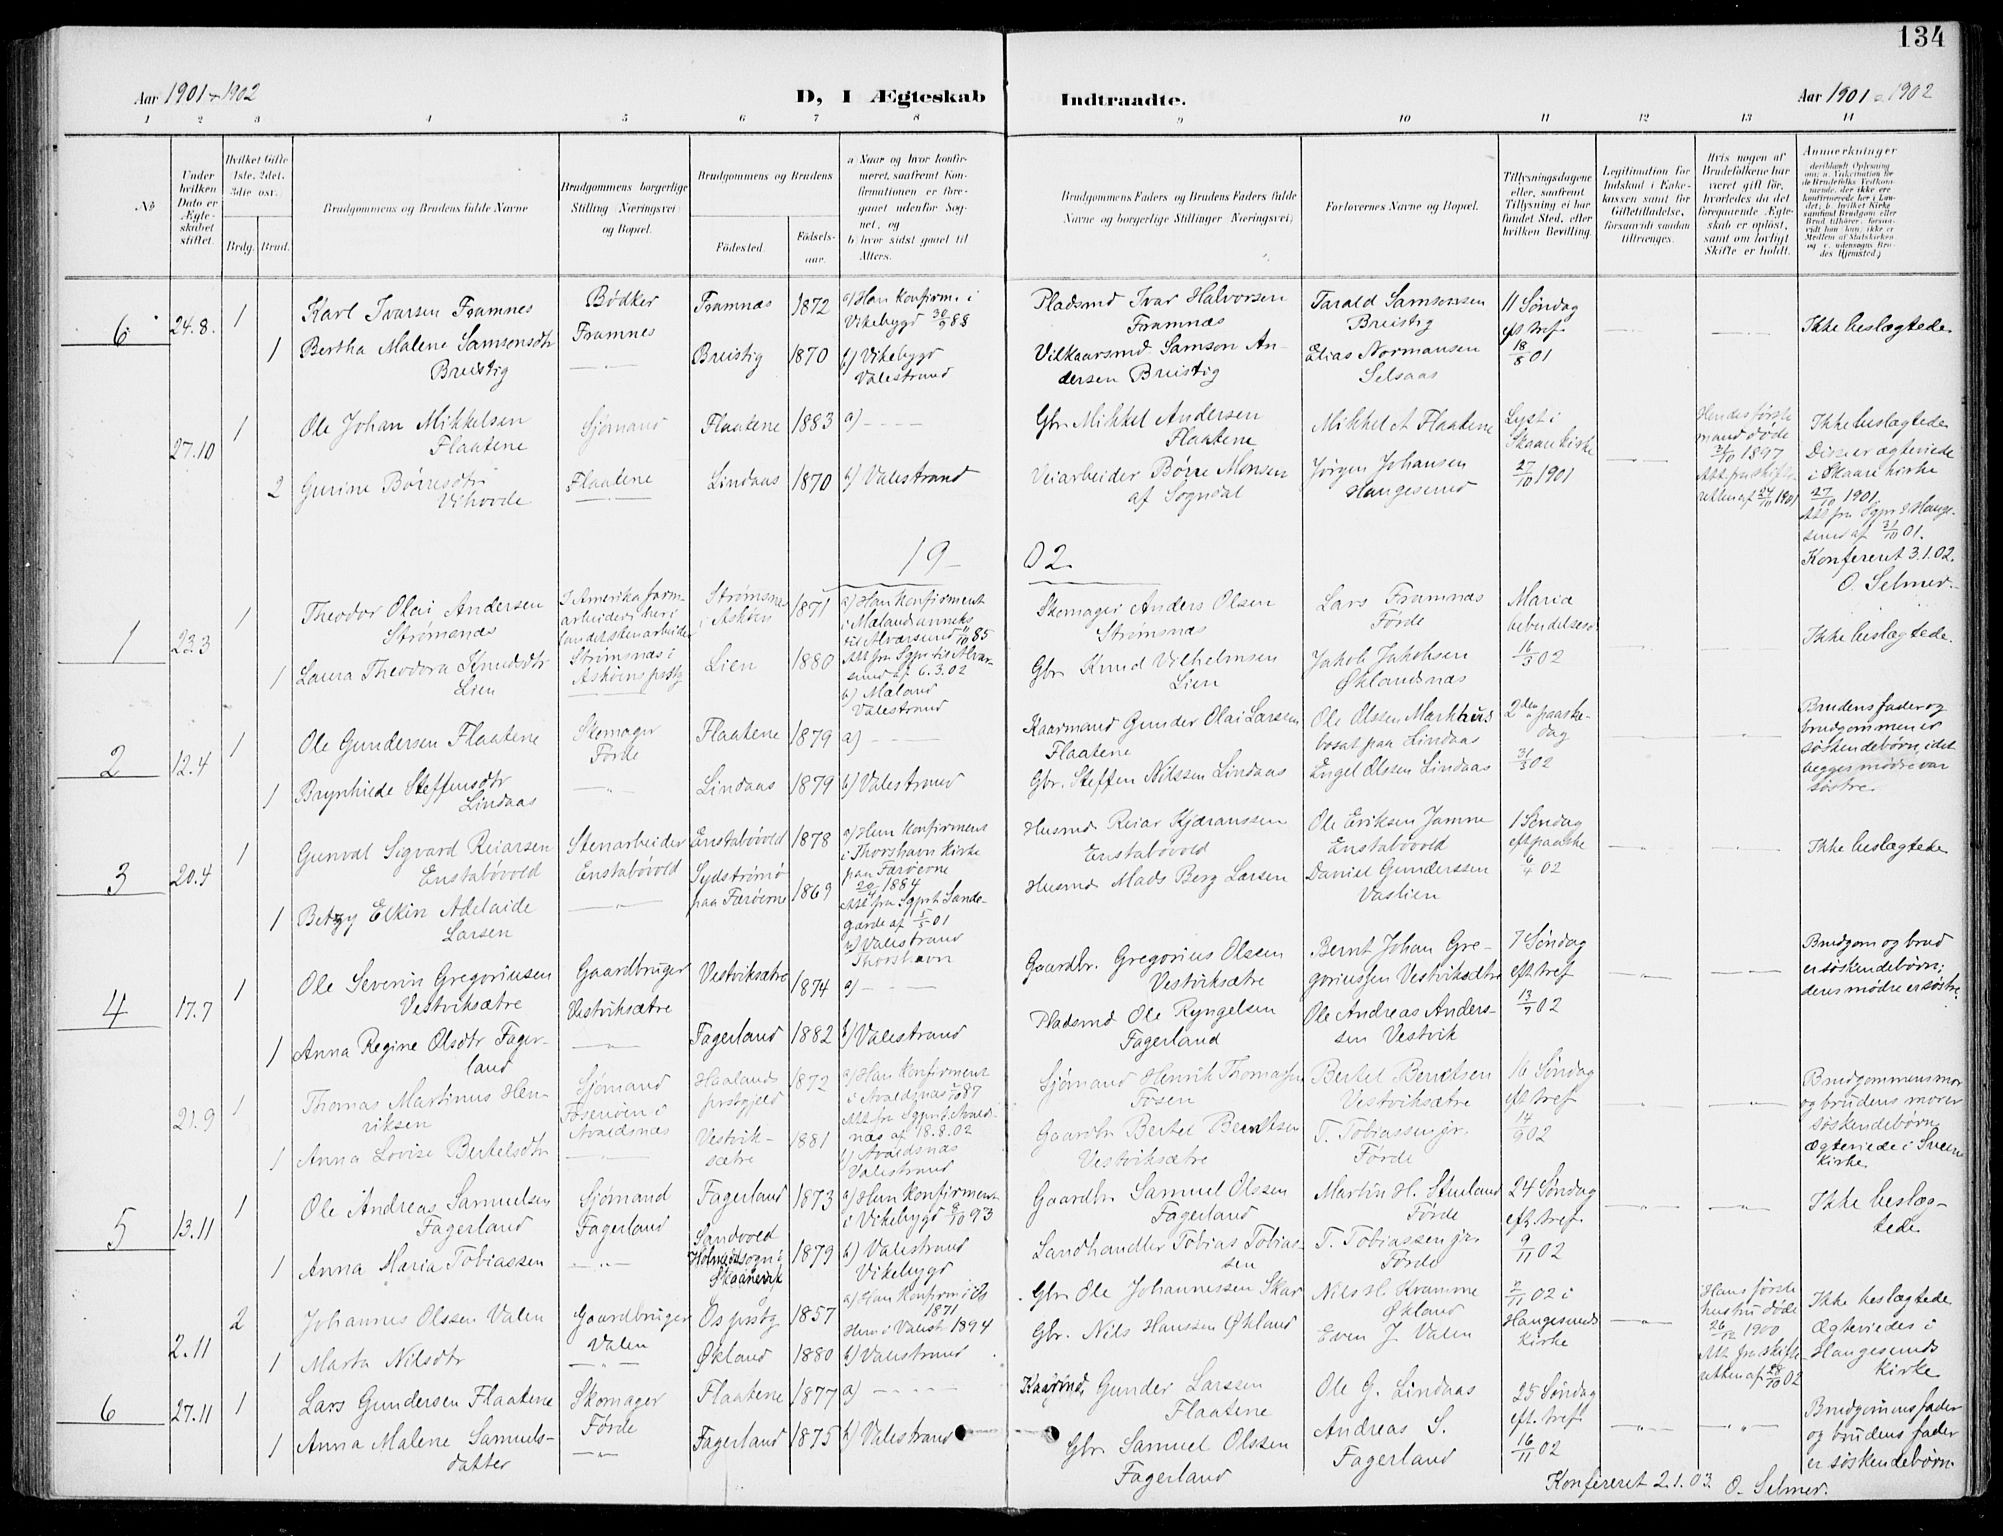 134
Aar 1901 & 1902
D, I Ægteskab Indtraadte.
Aar 1901 & 1902
1 2 3 4 5 6 7 8 9 10 11 12 13 14
No
Under hvilken Dato er Ægteskabet stiftet.
Hvilket Gifte 1ste, 2det, 3die osv.
Brdg. Brud.
Brudgommens og Brudens fulde Navne
Brudgommens borgerlige Stilling (Næringsvei) og Bopæl.
Brudgommens og Brudens
Fødested. Fødselsaar.
a) Naar og hvor konfirmeret, saafremt Konfirmationen er foregaaet udenfor Sognet, og
b) hvor sidst gaaet til Alters.
Brudgommens Faders og Brudens Faders fulde Navne og borgerlige Stillinger (Næringsvei)
Forlovernes Navne og Bopæl.
Tillysningsdagene eller, saafremt Tillysning ei har fundet Sted, efter hvilken Bevilling.
Legitimation for Indskud i Enkekassen samt for Giftetilladelse, forsaavidt saadan tiltrænges.
Hvis nogen af Brudefolkene har været gift før, hvorledes da det foregaaende Ægteskab er opløst, samt om lovligt Skifte er holdt.
Anmerkninger
6 24.8. 1 Karl Ivarsen Framnes
Bødker Framnes
Framnæs 1872
a) Han konfirm. i Vikebygd 30/9 88
Pladsmd Ivar Halvorsen Framnæs
Tarald Samsonsen Breistig
11 Søndag eft tref. 18/8 01
Ikke beslægtede
1 Bertha Malene Samsonsdtr Breistig
Breistig 1870
b) Vikebygd Valestrand
Vilkaarsmd Samson Andersen Breistig
Elias Normansen Selsaas
27.10 1 Ole Johan Mikkelsen Flaatene
Sjømand Flaatene
Flaatene 1883 a)
Gbr. Mikkel Andersen Flaatene
Mikkel A Flaatene
Lyst i Skaare kirke 27/10 1901
Hendes første mand døde 1897
Att. fra skifteretten af 24/10 1901
Ikke beslægtede
Disse er ægteviede i Skaare kirke 27/10 1901.
Att fra Sgpr. t Haugesund af 31/10 01.
2 Gurine Børresdtr Vihovde
Lindaas 1870 b) Valestrand
Veiarbeider Børre Monsen af Sogndal
Jørgen Johansen Haugesund
Konfereret 3.1.02.
O. Selmer.
19 02
1 23.3 1 Theodor Olai Andersen Strømsnæs
I Amerika farmarbeider, her i landet stenarbeider
Strømsnæs i Askøens prstg
Strømsnæs i Askøen 1871
a) Han konfirmeret i Mæland anneks til Alversund 85
Att fra Sgpr. til Alversund af 6.3.02
b) Mæland Valestrand
Skomager Anders Olsen Strømsnæs
Lars Framnæs Førde
Mariæ bebudelsesd 16/3 02
Ikke beslægtede.
1 Laura Theodora Knudsdtr Lien
Lien 1880
Gbr. Knud Vilhelmsen Lien
Jakob Jakobsen Øklandsnæs
2 12.4 1 Ole Gundersen Flaatene
Skomager Førde
Flaatene 1879 a)
Kaarmand Gunder Olai Larssen Flaatene
Ole Olssen Markhus bosat paa Lindaas
2den paaskedag 31/3 02
Brudens fader og brudgommen er søskendebørn, idet begges mødre var søstre.
1 Brynhilde Steffensdtr Lindaas
Lindaas 1879 b) Valestrand
Gbr. Steffen Nilssen Lindaas
Engel Olssen Lindaas
3 20.4 1 Gunval Sigvard Reiarsen Enstabøvold
Stenarbeider Enstabøvold
Enstabøvold 1878
a) Hun konfirmeret i Thorshavn kirke paa Færøerne 20/4 1884
Att fra Sgprt Sandegarde af 01
b) Valestrand Thorshavn
Husmd Reiar Kjæranssen Enstabøvold
Ole Eriksen Jamne Enstabøvold
1 Søndag eft paaske 6/4 02
Ikke beslægtede
1 Betzy Elkin Adelaide Larsen
Sydstrømø paa Færøerne 1869
Husmd Mads Berg Larsen
Daniel Gunderssen Vaslien
4 17.7 1 Ole Severin Gregoriussen Vestviksætre
Gaardbruger Vestviksætre
Vestviksætre 1874 a)
Gaardbr. Gregorius Olssen Vestviksætre
Bernt Johan Gregoriussen Vestviksætre
7 Søndag eft tref 13/7 02
Brudgom og brud er søskendebørn; deres mødre er søstre.
1 Anna Regine Olsdtr Fagerland
Fagerland 1882 b) Valestrand
Pladsmd Ole Ryngelsen Fagerland
Ole Andreas Anderssen Vestvik
21.9 1 Thomas Martinus Henriksen
Sjømand Fosenøen i Avaldsnæs
Haalands prstgjeld 1872
a) Han konfirmeret i Avaldsnæs 87
Att fra Sgpr t. Avaldsnæs af 18.8.02
b) Avaldsnæs Valestrand
Sjømand Henrik Thomassen Fosen
Bertel Berntsen Vestviksætre
16 Søndag eft tref 14/9 02
Brudgommens mor og brudens mor er søskendebørn
Ægteviede i Sveens kirke.
1 Anna Lovise Bertelsdtr
Vestviksætre 1881
Gaardbr Bertel Berntsen Vestviksætre
T. Tobiassen jr. Førde
5 13.11 1 Ole Andreas Samuelsen Fagerland
Sjømand Fagerland
Fagerland 1873
a) Hun konfirmeret i Vikebygd 8/10 93
Gaardbr. Samuel Olssen Fagerland
Martin H. Stueland Førde
24 Søndag eft. tref. 9/11 02
Ikke beslægtede
1 Anna Maria Tobiassen
Sandvold Holmedalsogn i Skaanevik 1879
b) Valestrand Vikebygd
Landhandler Tobias Tobiassen
T. Tobiassen jr. Førde
2.11 2 Johannes Olssen Valen
Gaardbruger Valen
Os prstg 1857
a) Han konfirm i Os 1871
Hun i Valestr 1894
Gbr Ole Johannessen Skar
Nils H. Kramme Økland
2/11 02 i Haugesunds kirke
Hans første hustru døde 26/12 1900
Att. fra skifteretten af 28/10 02
Ikke beslægtede
Ægteviedes i Haugesunds kirke
1 Marta Nilsdtr
Økland 1880 b) Valestrand
Gbr. Nils Hanssen Økland
Even J. Valen
6 27.11 1 Lars Gundersen Flaatene
Skomager Førde
Flaatene 1877 a)
Kaarmd. Gunder Larssen Flaatene
Ole G. Lindaas
25 Søndag eft. tref. 16/11 02
Brudgommens fader og brudens fader er søskendebørn
1 Anna Malene Samuelsdatter
Fagerland 1875 b) Valestrand
Gbr Samuel Olssen Fagerland
Andreas S. Fagerland
Konfereret 2.1.03. O. Selmer.